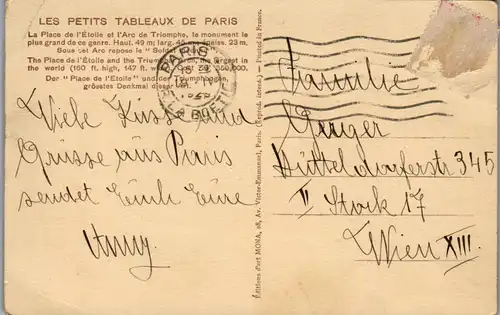 LES PETITS TABLEAUX DE PARIS
La Place de l'Étoile et l'Arc de Triomphe, le monument le
plus grand de ce genre. Haut. 49 m; larg. 45 m; épaiss. 22 m,
Sous cet Arc repose le "Soldat
The Place de l'Étoile and the Triumph Arch, the largest in
the world (160 ft. high, 147 ft.
Der "Place de l'Etoile" und der Triumphbogen,
grösstes Denkmal dieser
PARIS
LA BOETIE
Viele Küsse und
Grüsse aus Paris
sendet Euch Eure
Éditions d'art MONA, 28, Av. Victor-Emmanuel, Paris. (Reprod. interd.) — Printed in France.
Familie
Hütteldorferstr 345
II Stock 17
Wien XIII.